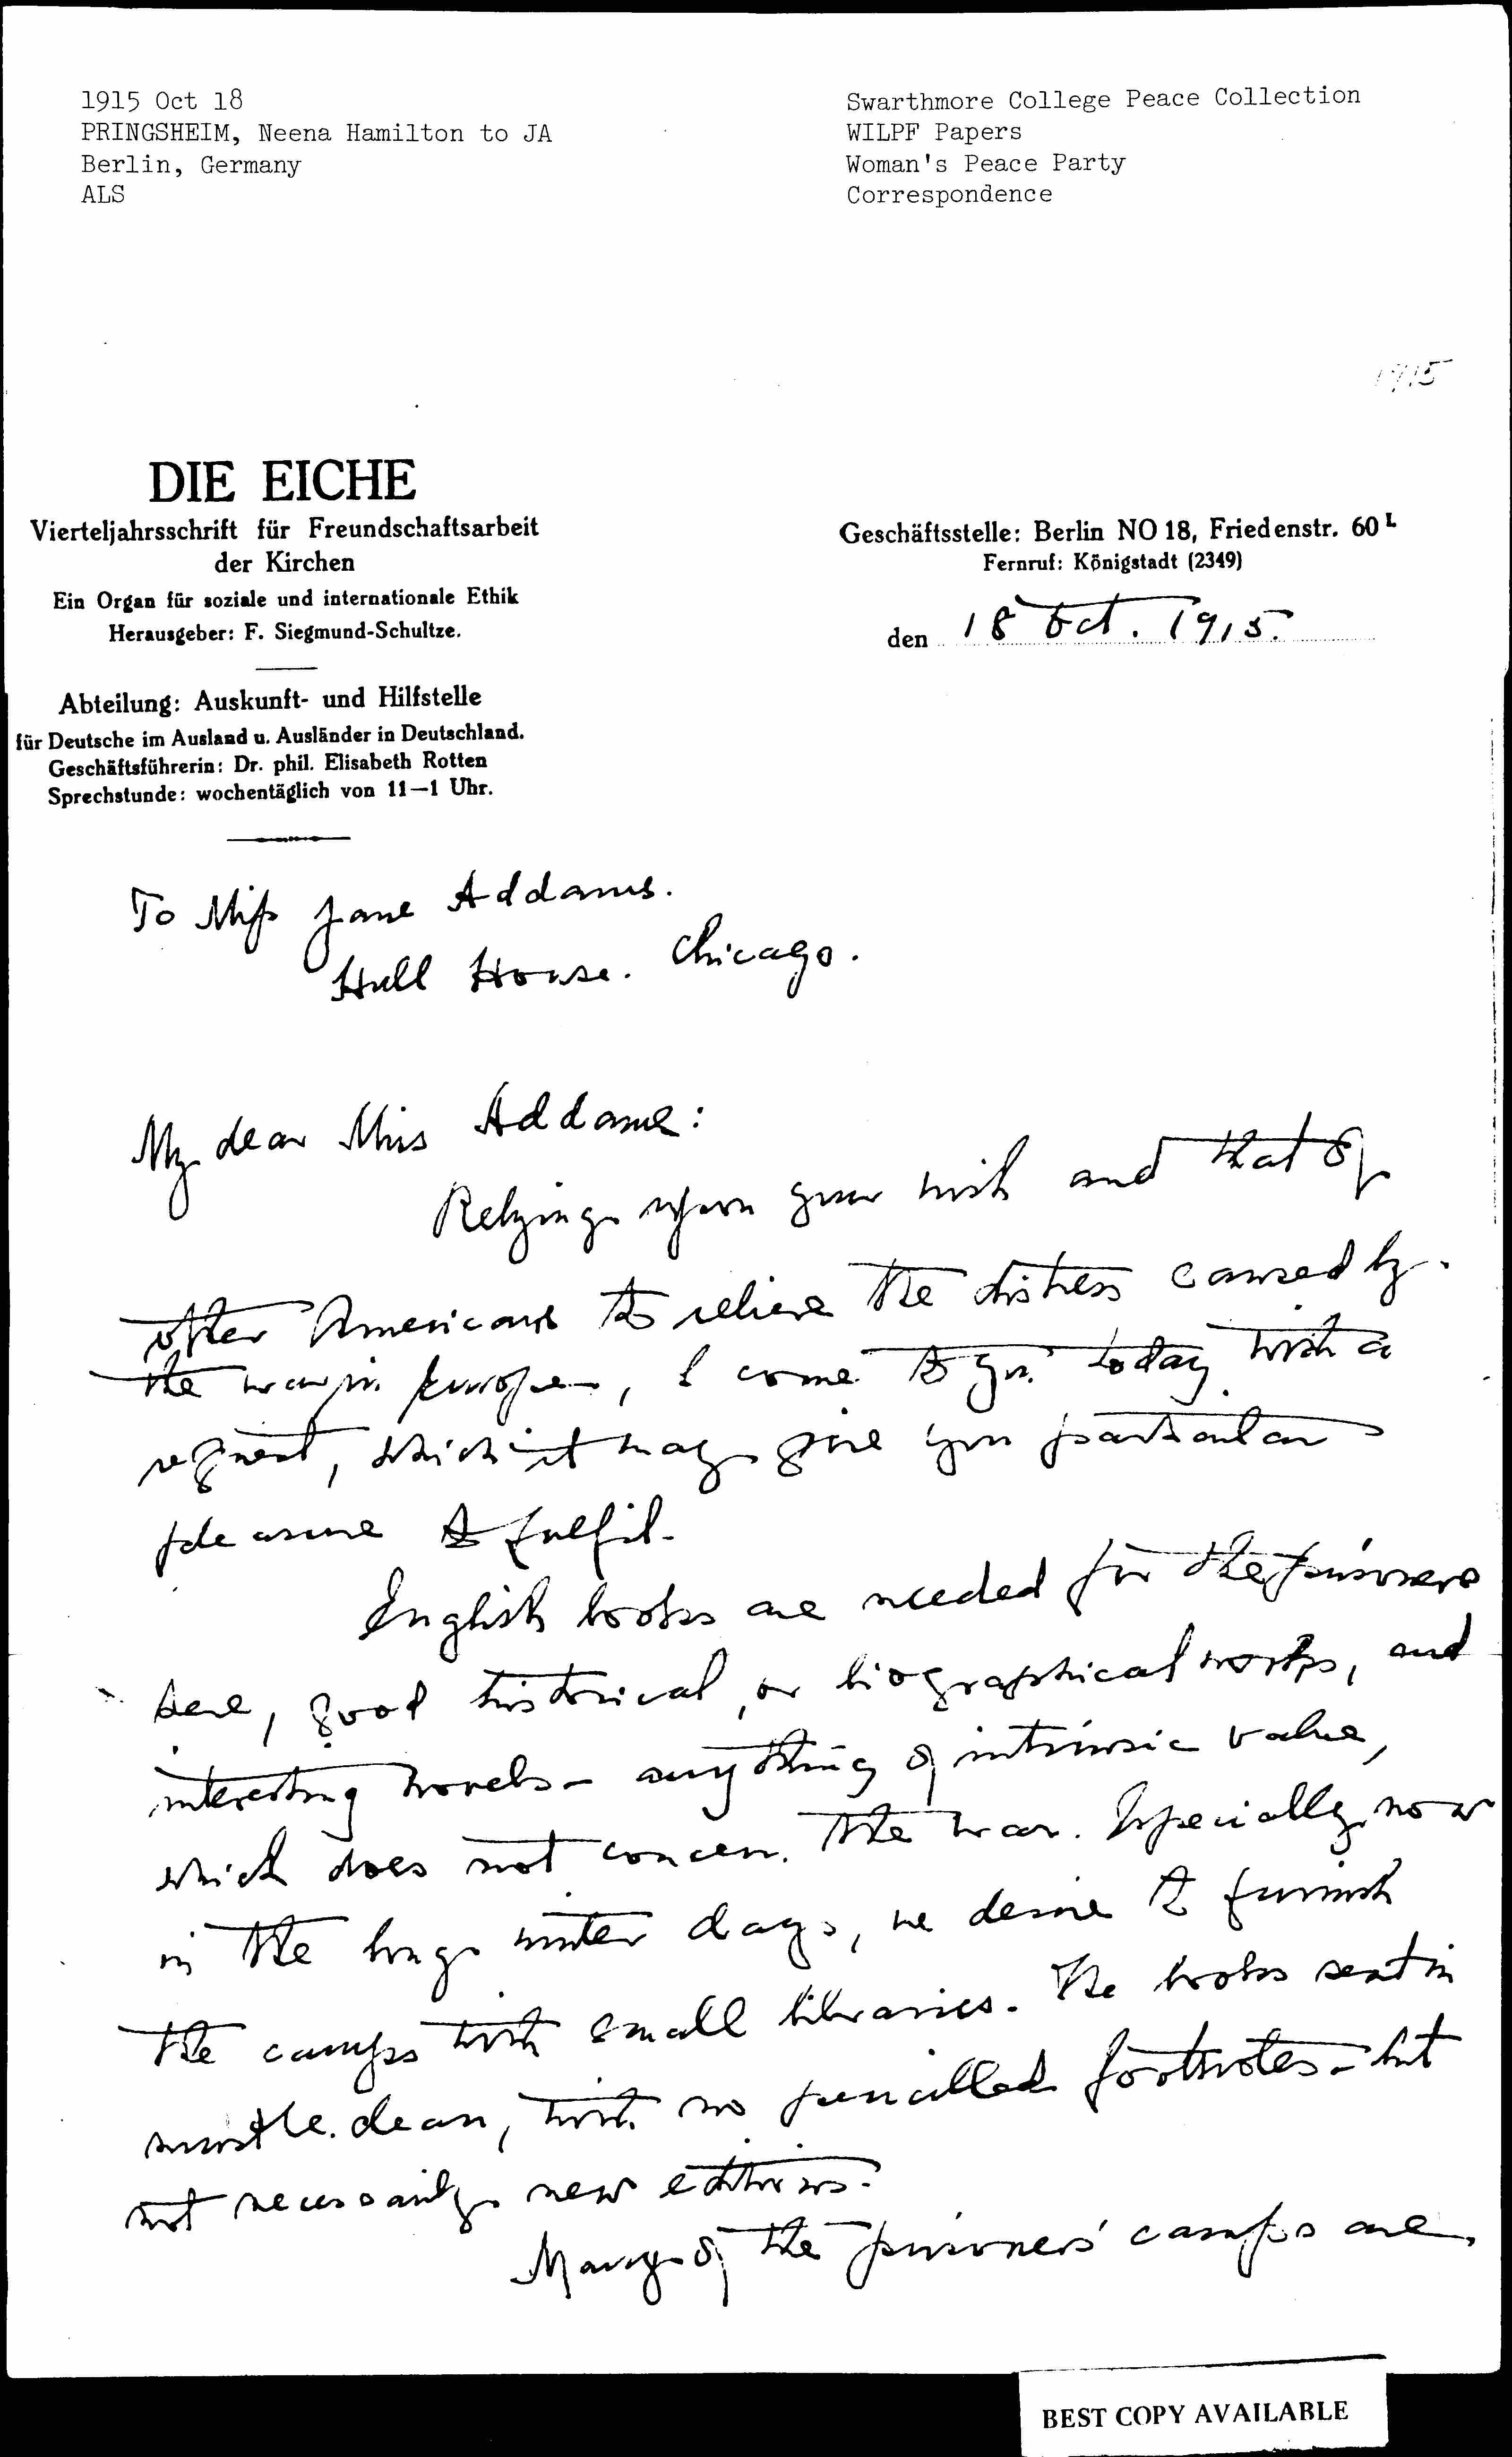 1915 Oct 18
PRINGSHEIM, Neena Hamilton to JA
Berlin, Germany
ALS
Swarthmore College Peace Collection
WILPF Papers
Woman's Peace Party
Correspondence
1915
DIE EICHE
Vierteljahrsschrift für Freundschaftsarbeit
der Kirchen
Ein Organ für soziale und internationale Ethik
Herausgeber: F. Siegmund-Schultze.
Geschäftsstelle: Berlin NO 18, Friedenstr. 60 I.
Fernruf: Königstadt (2349)
den 18 Oct. 1915.
Abteilung: Auskunft- und Hilfstelle
für Deutsche im Ausland u. Ausländer in Deutschland.
Geschäftsführerin: Dr. phil. Elisabeth Rotten
Sprechstunde: wochentäglich von 11—1 Uhr.
To Miss Jane Addams.
Hull House. Chicago.
My dear Miss Addams:
Relying upon your wish and that of
other Americans to relieve the distress caused by
the war in Europe, I come to you today with a
request, which it may give you particular
pleasure to fulfil.
English books are needed for the prisoners
here, good historical, or biographical works, and
interesting novels - anything of intrinsic value,
which does not concern the war. Especially now
in the long winter days, we desire to furnish
the camps with small libraries. The books sent in
must be clean, with no pencilled footnotes - but
not necessarily new editions.
Many of the prisoners' camps are
BEST COPY AVAILABLE